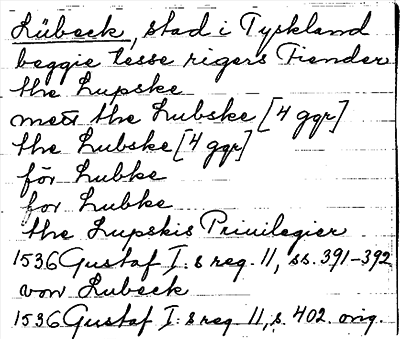 Lübeck, stad i Tyskland
beggie tesse rigers Fiender
the Lupske
mett the Lubske [4 ggr]
the Lubske [4 ggr]
för Lubke
for Lubke
the Lupskis Priuilegier
1536 Gustaf I:s reg. 11, ss. 391-392
vonn Lubeck
1536 Gustaf I:s reg. 11, s. 402. orig.